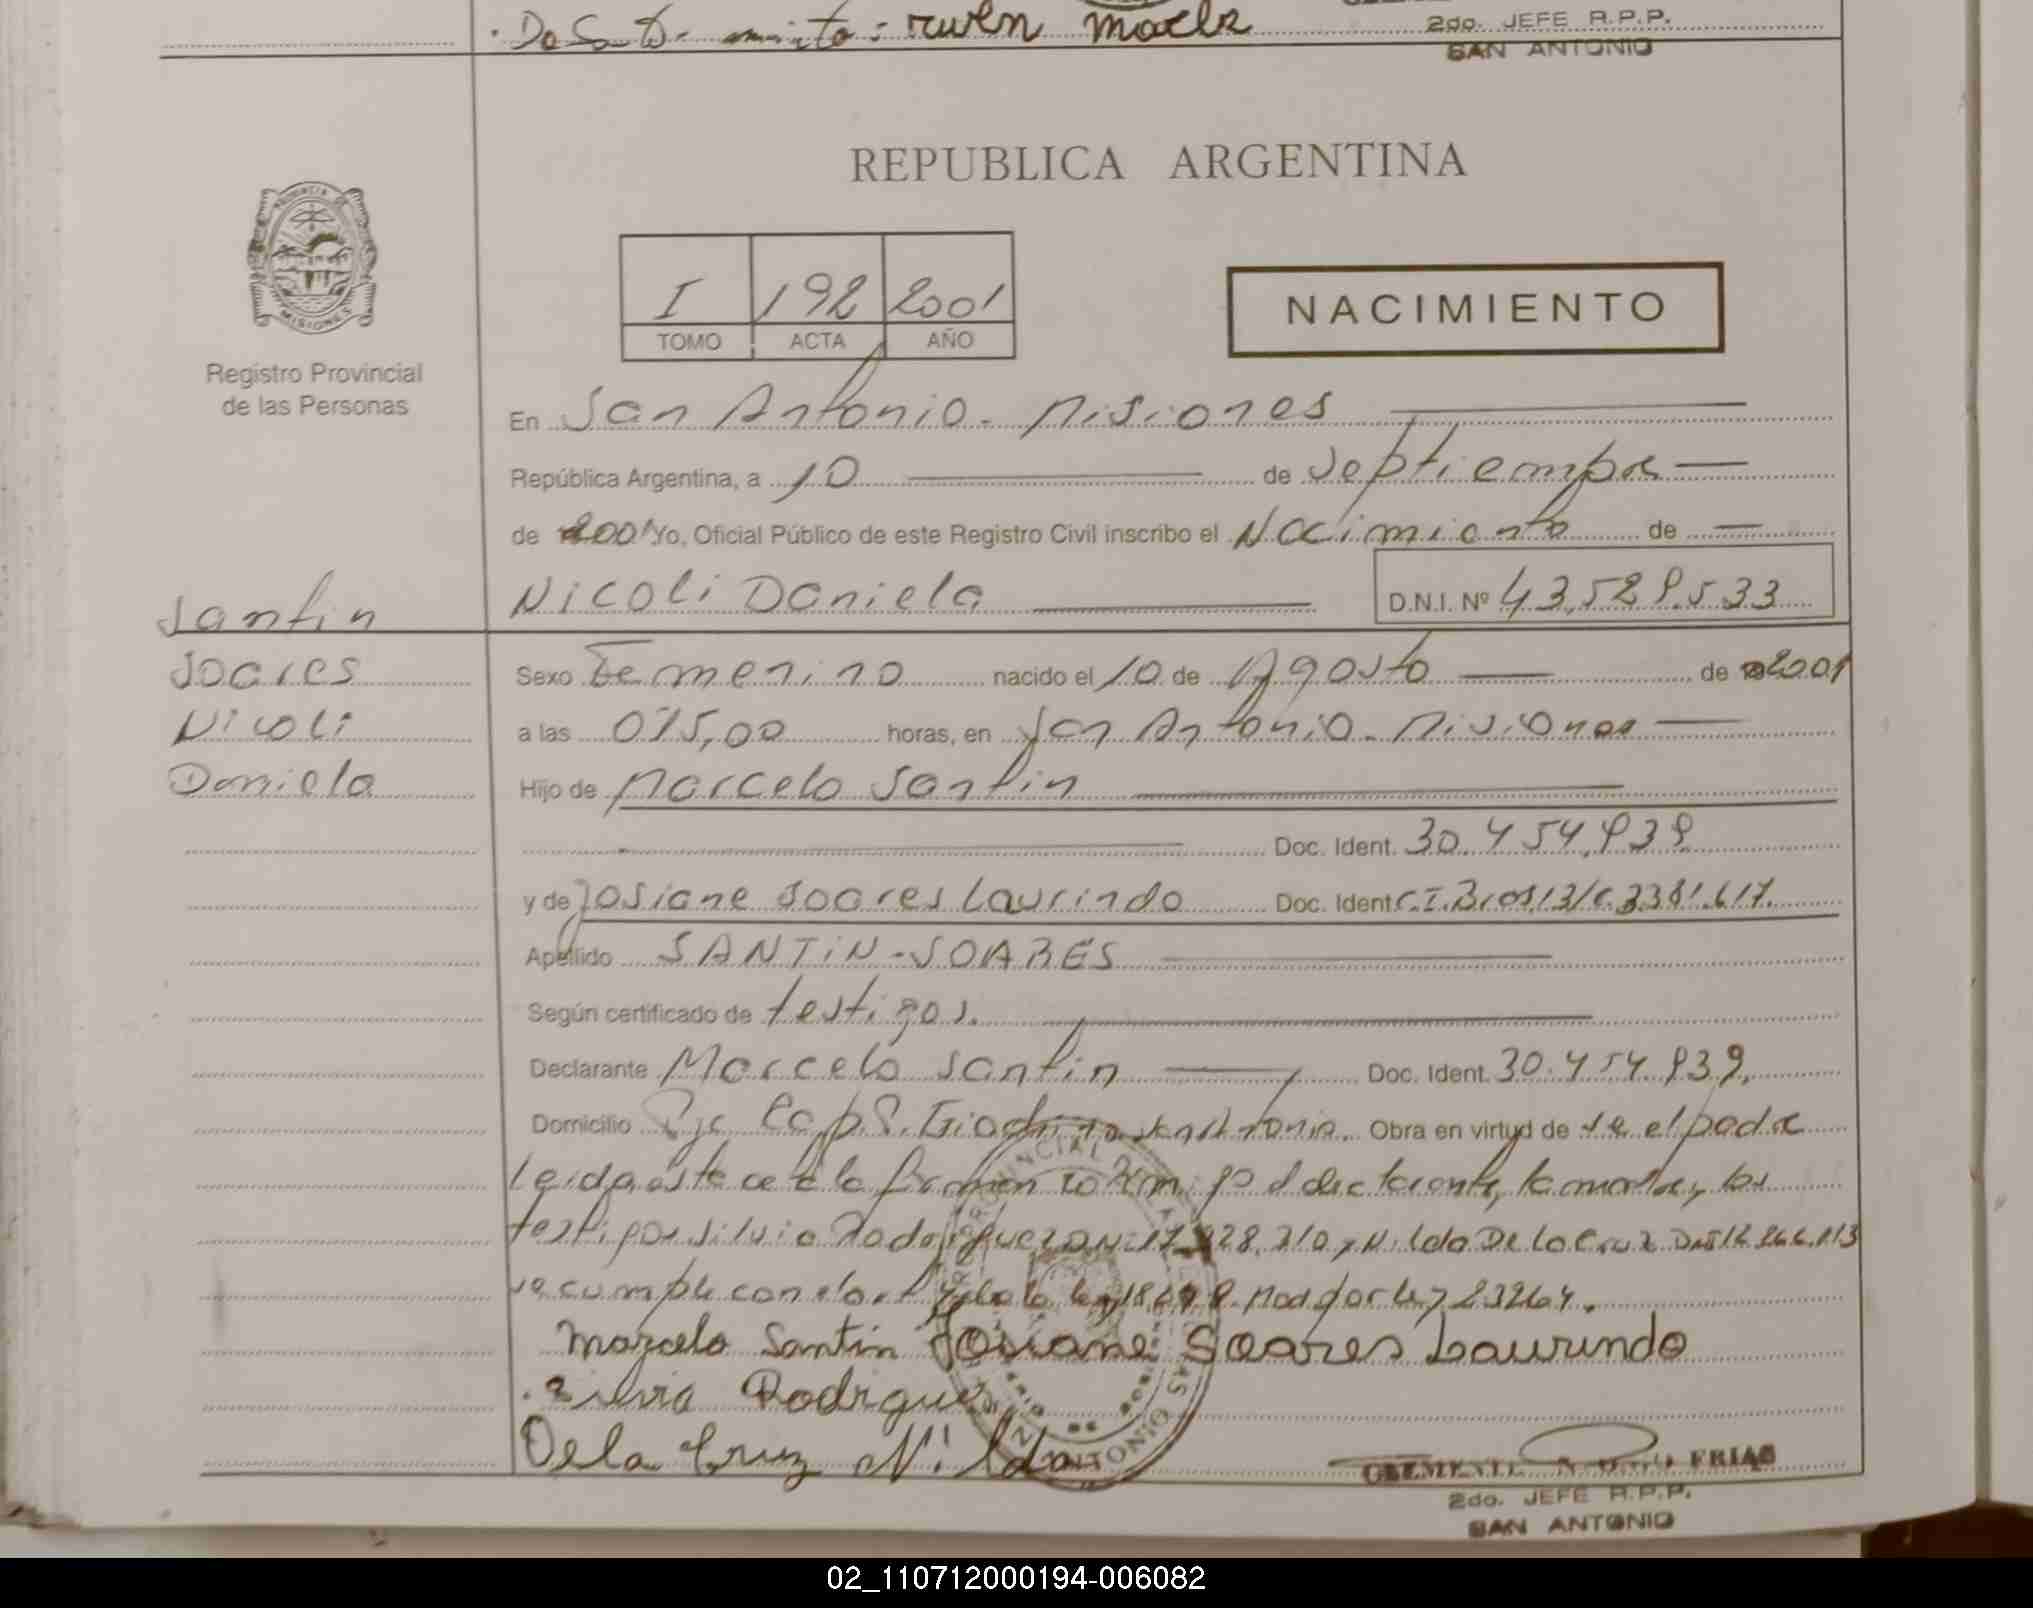 ruen
2do. JEFE R.P.P.
SAN ANTONIO
REPUBLICA ARGENTINA
PROVINCIA DE
MISIONES
Registro Provincial
de las Personas
I 192 2001
TOMO ACTA AÑO
NACIMIENTO
En San Antonio - Misiones
República Argentina, a 10 de Septiembre
de 2001 Yo, Oficial Público de este Registro Civil inscribo el Nacimiento de
Nicoli Daniela D.N.I. Nº 43.529.533
Santin
Soares
Nicoli
Daniela
Sexo Femenino nacido el 10 de Agosto de 2001
a las 015,00 horas, en San Antonio - Misiones
Hijo de Marcelo Santin
Doc. Ident. 30.454.939
y de Josiane Soares Laurindo Doc. Ident. C.I. Brasil 3/C 3381.617.
Apellido SANTiN - SOARES
Según certificado de testigos.
Declarante Marcelo Santin Doc. Ident. 30.454.939.
Domicilio Pje San Antonio. Obra en virtud de se el padre
Leida este acta la firman conmigo el declarante, la madre y los
testigos Silvio Rodriguez y Nilda De La Cruz
se cumple con el de la ley Mod por ley 23264.
Marcelo Santin Josiane Soares Laurindo
Silvio Rodriguez
De la Cruz Nilda
CLEMENTE FRIAS
2do. JEFE R.P.P.
SAN ANTONIO
02_110712000194-006082